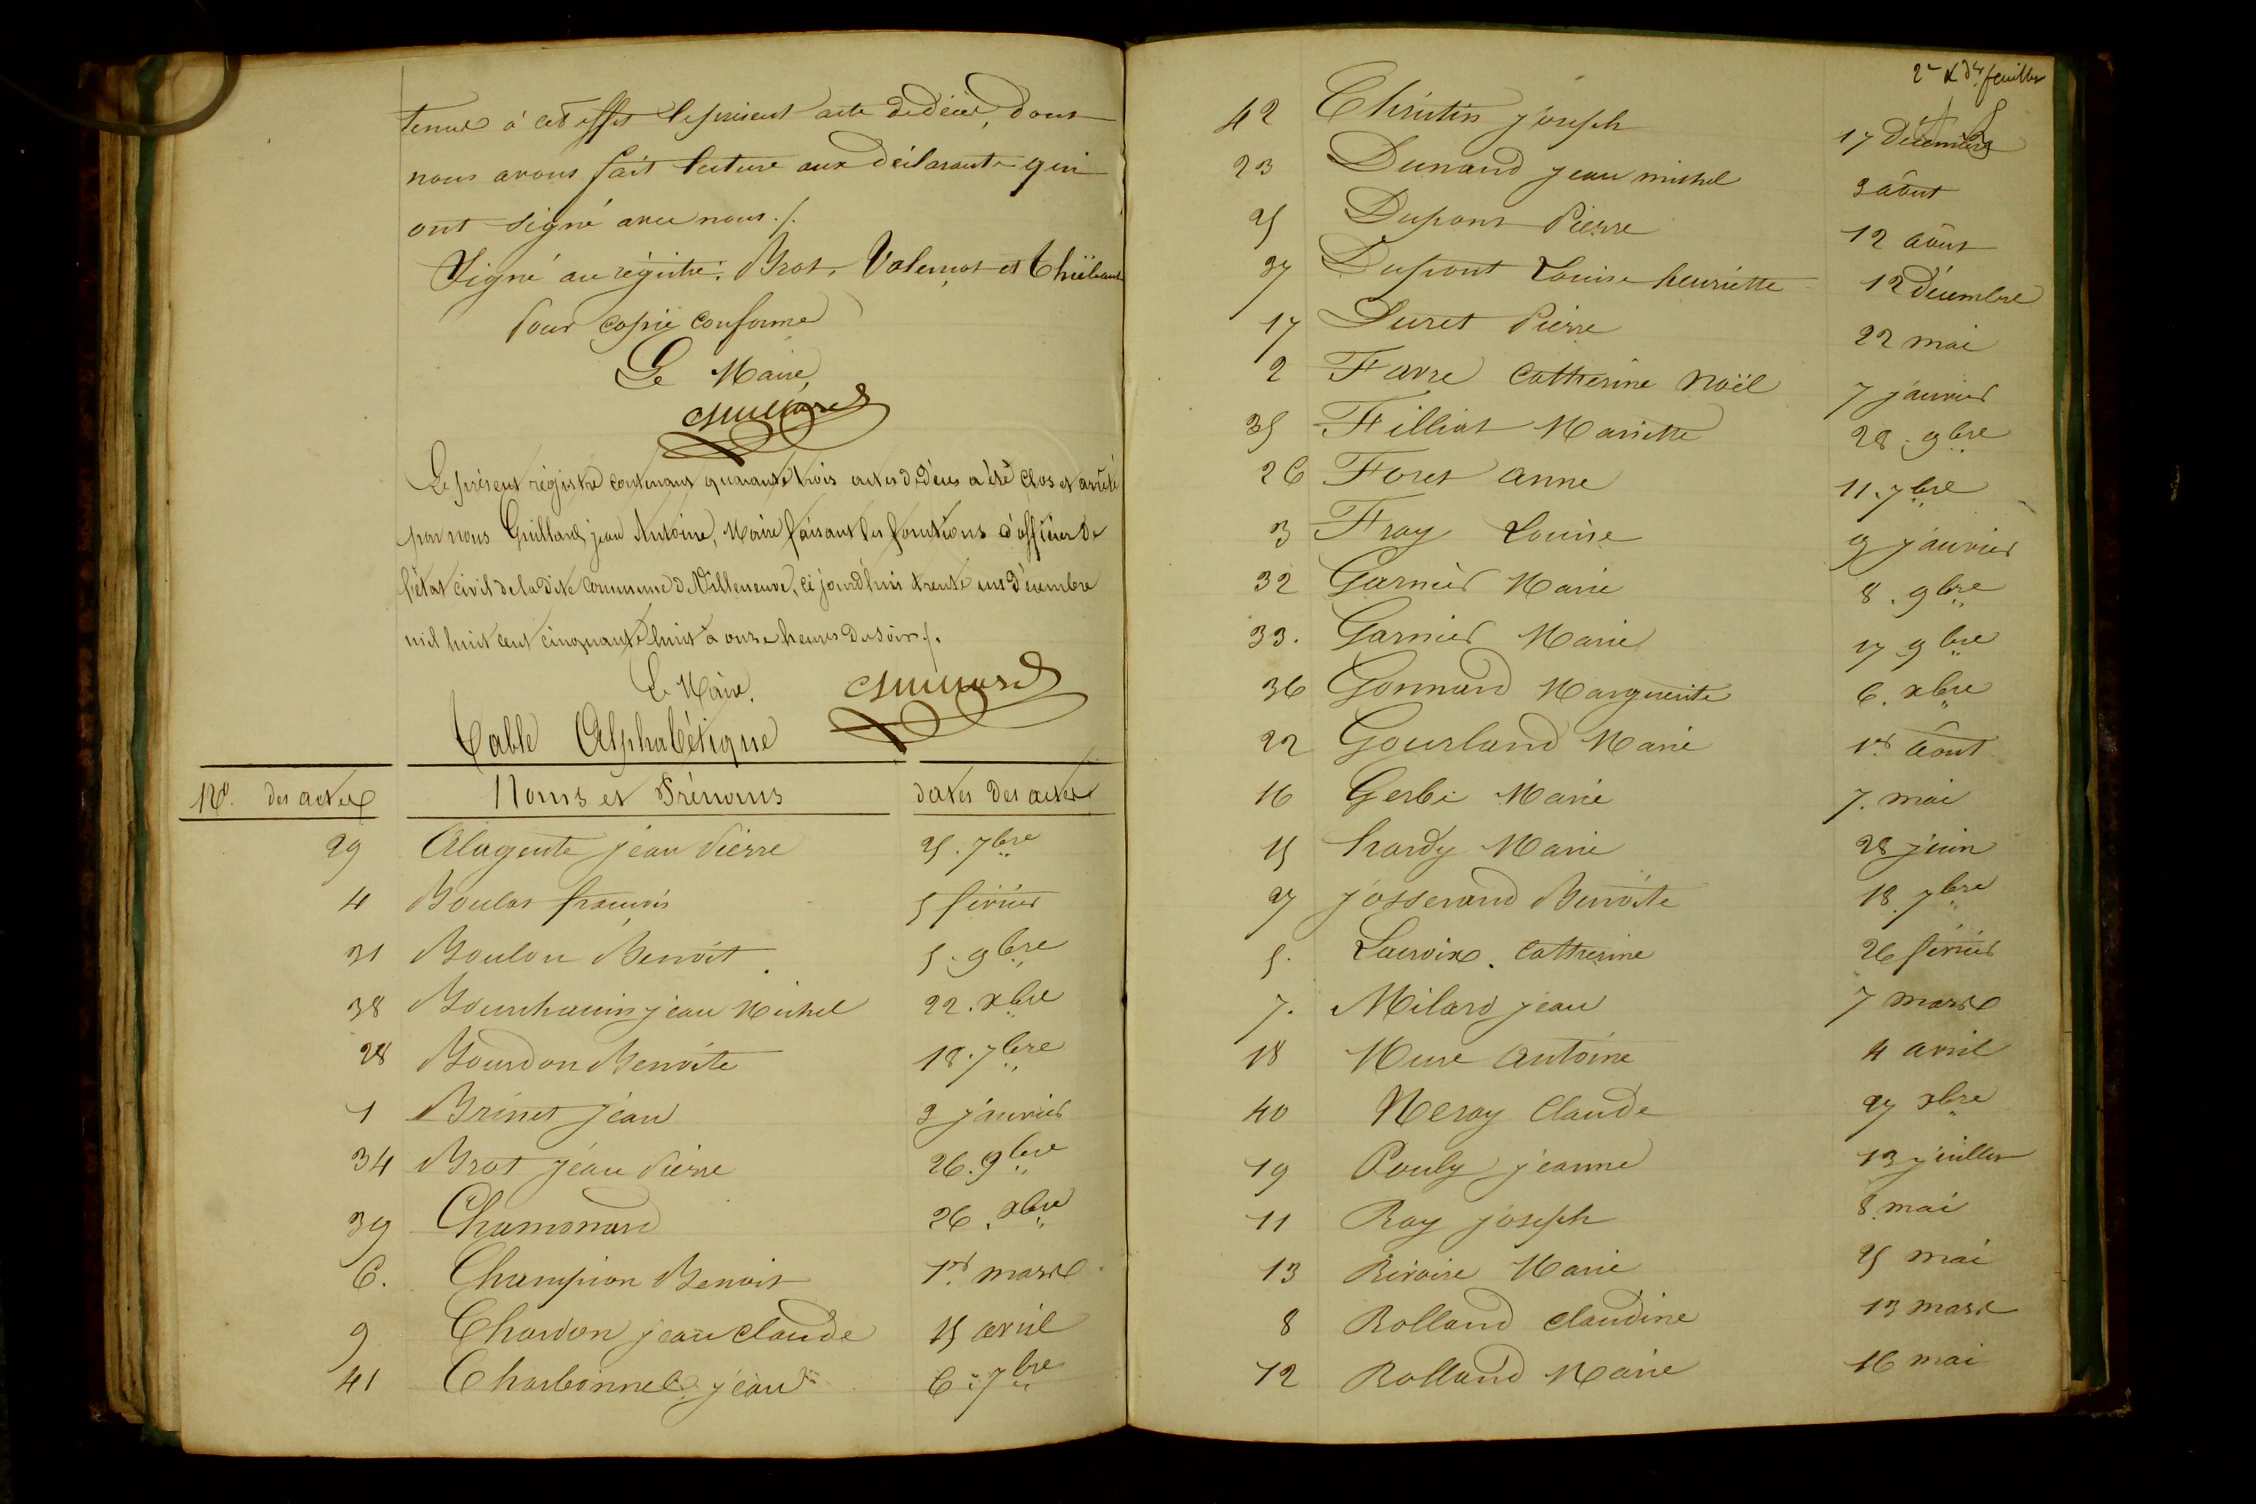 tenue à cet effet le présent acte de décès, dont
nous avons fait lecture aux déclarants qui
ont signé avec nous ./.
Signé au régistre: Brot, Valemot et Thiébaud
Pour copie conforme
Le Maire,
Guillard
Le présent régistre contenant quarante trois actes de Décès a été clos et arrêté
par nous Guillard jean Antoine, Maire faisant les fonctions d'officier de
l'état civil de la dite Commune de Villeneuve, ce jourd'hui trente un Décembre
mil huit cent cinquante huit à onze heures du soir ./.
Le Maire.
Guillard
Table Alphabétique
No. des actes Noms et Prénoms dates des actes
29 Alagente jean Pierre 25. 7bre
4 Boulas francois 5 février
31 Boulon Benoit 5. 9bre
38 Bourchanin jean Michel 22. xbre
28 Bourdon Benoite 18. 7bre
1 Brinet jean 3 janvier
34 Brot jean Pierre 26. 9bre
39 Chamonard 26. xbre
6. Champion Benoit 1er mars
9 Chardon jean claude 15 avril
41 Charbonnel jean 6. 7bre
2e & der feuillet
42 Christin joseph 17 Décembre
23 Dunand jean michel 3 août
25 Dupont Pierre 12 août
37 Dupont Louise henriette 12 Décembre
17 Duret Pierre 22 mai
2 Favre Catherine Noël 7 janvier
35 Filliat Mariette 28. 9bre
26 Foret anne 11. 7bre
3 Fray Louise 9 janvier
32 Garnier Marie 8. 9bre
33. Garnier Marie 17 9bre
36 Gonnard Marguerite 6. xbre
22 Gourland Marie 1er août
16 Gerbe Marie 7. mai
15 hardy Marie 28 juin
27 josserand Benoite 18. 7bre
5. Lacroix. Catherine 26 février
7. Milard jean 7 mars
18 Mure Antoine 4 avril
40 Neray Claude 27 xbre
19 Pouly jeanne 13 juillet
11 Ray joseph 8. mai
13 Rivoire Marie 25 mai
8 Rolland claudine 13 mars
12 Rolland Marie 16 mai